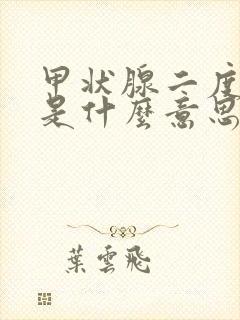 甲状腺二度
是什麼意思
葉雲飛